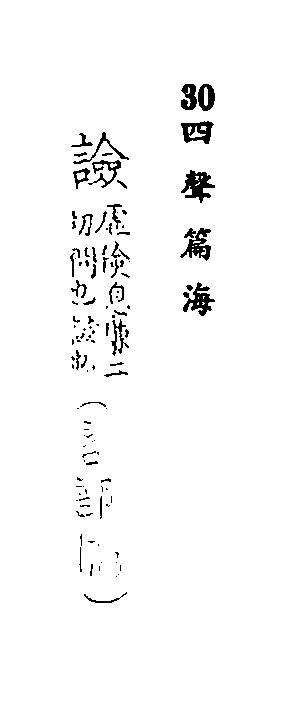 30
四聲篇海
譣
虛險息廉二
切問也詖也
(言部